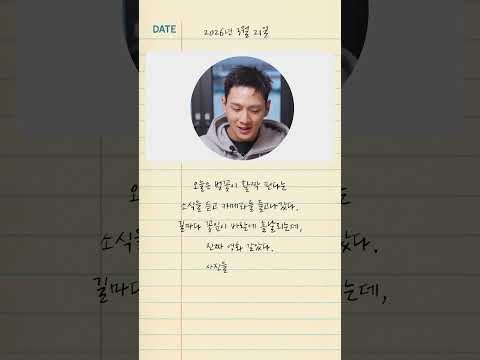 DATE 2026년 3월 21일
오늘은 벚꽃이 활짝 핀다는
소식을 듣고 카메라를 들고나갔다.
길마다 꽃잎이 바람에 흩날리는데,
진짜 영화 같았다.
사진을
소식을
길마다 는데,